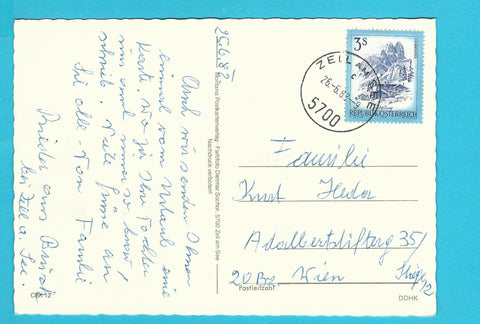 25.6.82
Auch wir senden Ihnen
einmal vom Urlaub eine
Karte. Wo ja Ihre Tochter
uns auch immer so lieb
schreib. Viele Grüße an
Sie alle. Von Familie
Brieder aus Bruck
bei Zell a. See.
Postkartenverlag · Farbfoto Dietmar Sochor, 5700 Zell am See
Nachdruck verboten!
ZELL AM SEE
26.-6.82-9
5700
3S
REPUBLIK ÖSTERREICH
Familie
Kurt Heder
Adalbertstiftерg 35/
20 Bez Wien
Postleitzahl
12
DDHK